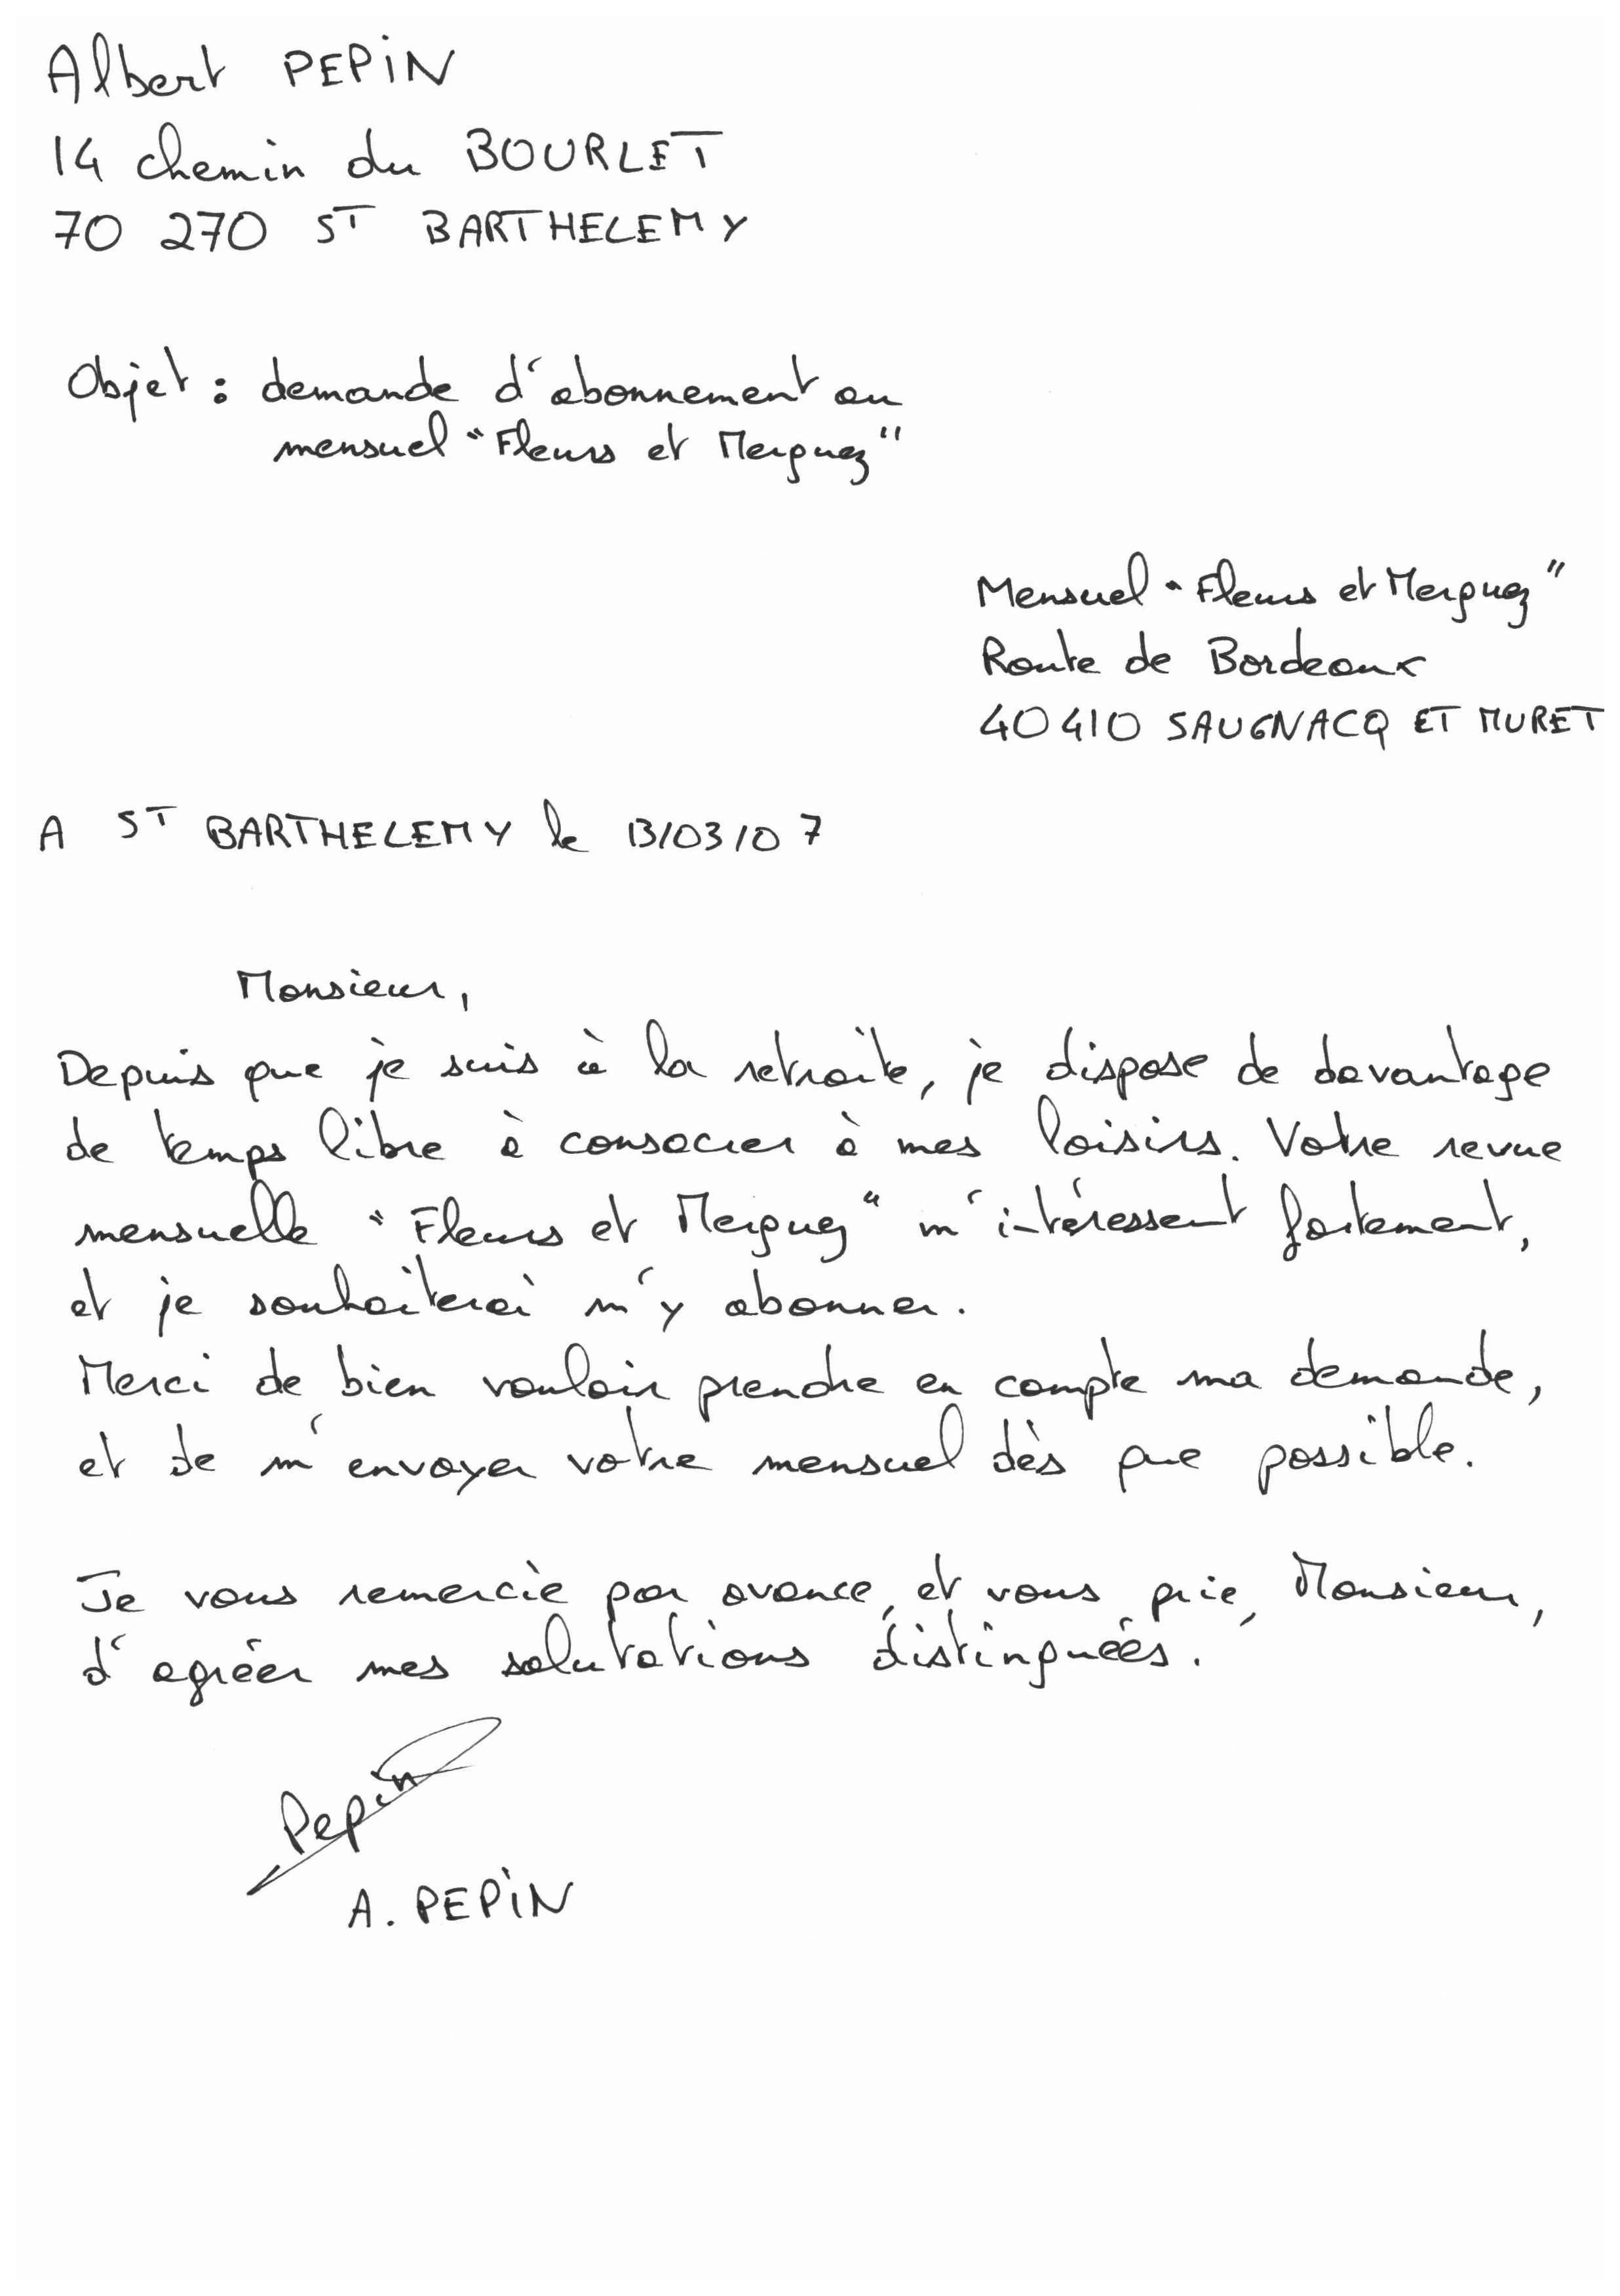 Albert PEPIN
14 chemin du BOURLET
70 270 ST BARTHELEMY
Objet : demande d'abonnement au
mensuel "Fleurs et Merguez"
Mensuel "Fleurs et Merguez"
Route de Bordeaux
40410 SAUGNACQ ET MURET
A ST BARTHELEMY le 13/03/07
Monsieur,
Depuis que je suis à la retraite, je dispose de davantage
de temps libre à consacrer à mes loisirs. Votre revue
mensuelle "Fleurs et Merguez" m'intéressent fortement,
et je souhaiterai m'y abonner.
Merci de bien vouloir prendre en compte ma demande,
et de m'envoyer votre mensuel dès que possible.
Je vous remercie par avance, et vous prie, Monsieur,
d'agréer mes salutations distinguées.
Pepin
A. PEPIN